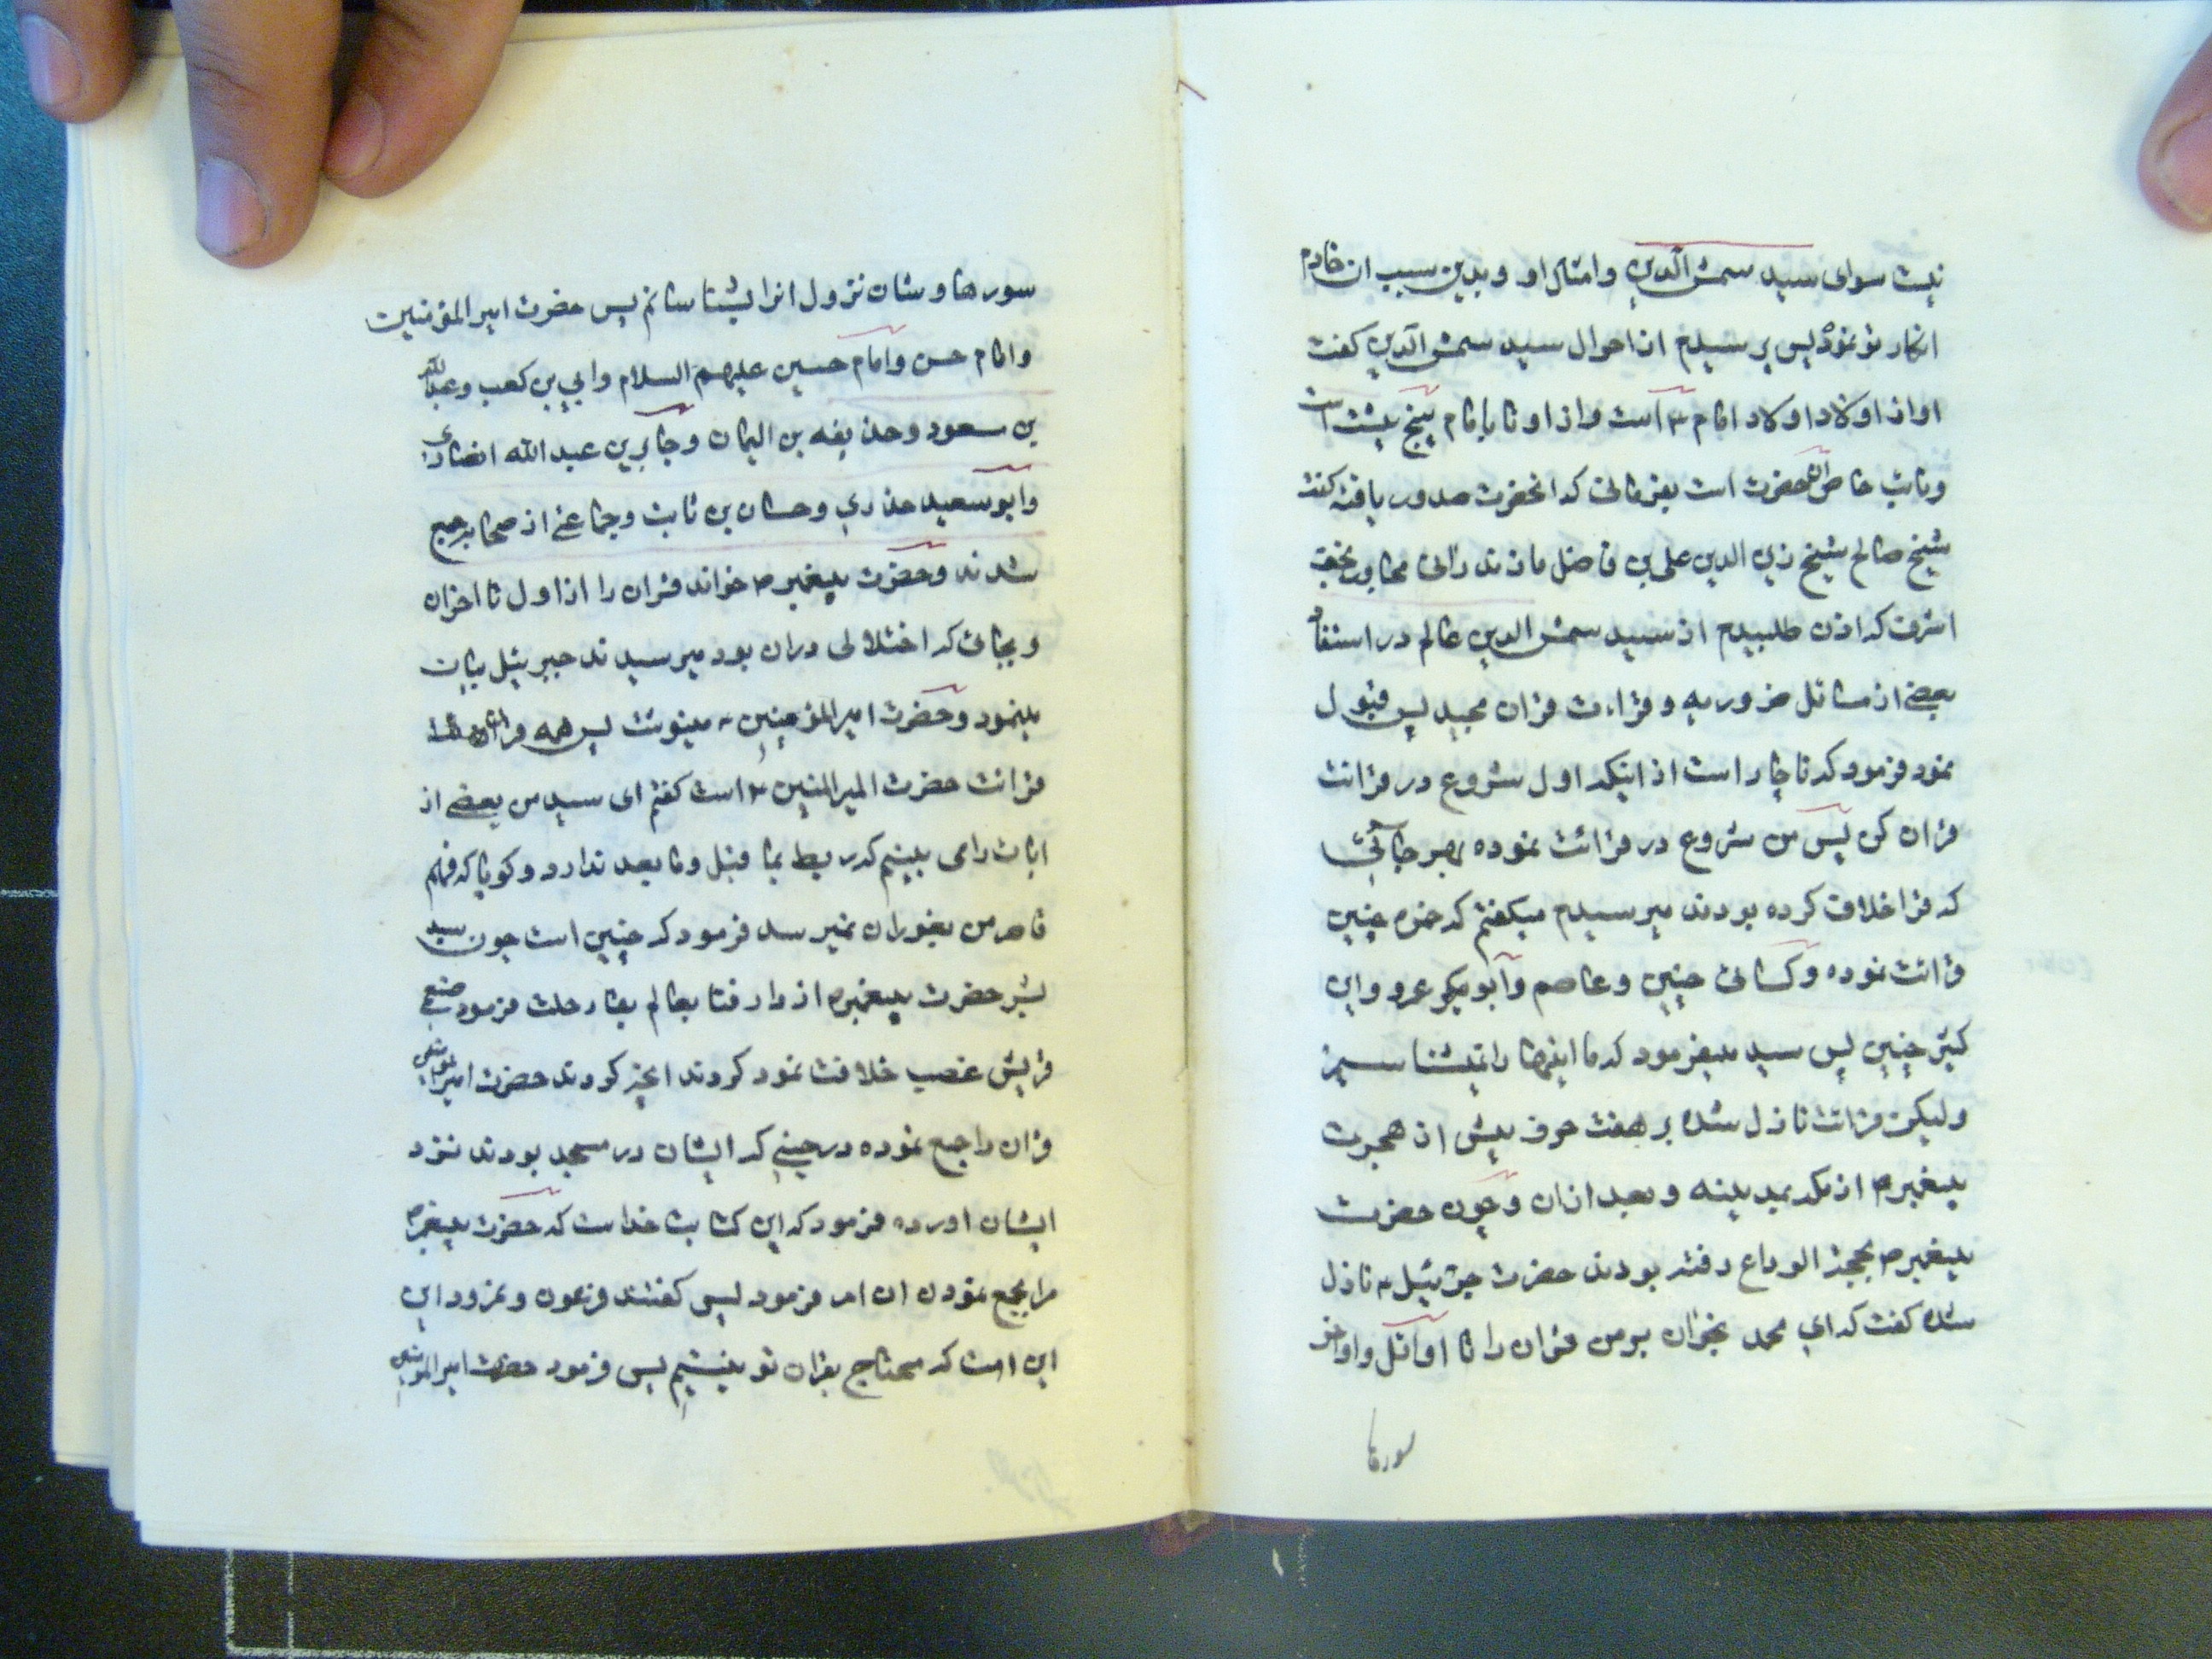 نیست سوای سید سمش الدین و امثال او و بدین سبب ان خادم
انکار تو نمود پس پرسیدم از احوال سید سمش الدین کفت
او از اولاد اولاد امام ۳ است و از او تا بامام پنج پشت است
و نایب خاص انحضرت است بفرمانی که انحضرت صدور یافته کفت
شیخ صالح شیخ زین الدین علی بن فاضل مازندرانی مجاور نجف
اشرف که اذن طلبیدم از سید سمش الدین عالم در استفاده
بعضی از مسائل ضروریه و قراءت قران مجید پس قبول
نمود فرمود که ناچار است از اینکه اول شروع در قرائت
قران کن پس من شروع در قرائت نموده بهر جائی
که قرا خلاف کرده بودند میرسیدم میکفتم که حمزه چنین
قرائت نموده و کسائی چنین و عاصم و ابو عمرو و ابن
کثیر چنین پس سید میفرمود که ما اینها را نمیشناسیم
ولیکن قرائت نازل شده بر هفت حرف پیش از هجرت
پیغمبر ص از مکه بمدینه و بعد از ان و چون حضرت
پیغمبر ص بحجة الوداع رفته بودند حضرت جبرئیل نازل
شده کفت که ای محمد بخوان بر من قران را تا اوائل و اواخر
سورها
سورها و شان نزول انرا بشناسانم پس حضرت امیر المؤمنین
و امام حسن و امام حسین علیهم السلام و ابی بن کعب و عبدالله
بن مسعود و حذیفه بن الیمان و جابر بن عبد الله انصاری
و ابو سعید خدری و حسان بن ثابت و جماعتی از صحابه جمع
شدند و حضرت پیغمبر ص خواند قران را از اول تا اخر ان
و بجائی که اختلافی دران بود میرسیدند جبرئیل بیان
مینمود و حضرت امیر المؤمنین مینوشت پس همه
قرائت حضرت امیر المنین است کفتم ای سید من بعضی از
ایات را می بینم که ربط بما قبل و ما بعد ندارد و کویا که فهم
قاصر من بغور ان نمیرسد فرمود که چنین است چون سید
بشر حضرت پیغمبر ص از دار فنا بعالم بقا رحلت فرمود صنم
قریش غصب خلافت نمود کردند انچه کردند حضرت امیر المؤمنین
قران را جمع نموده در حینی که ایشان در مسجد بودند نزد
ایشان اورده فرمود که این کتاب خداست که حضرت پیغمبر ص
مرا بجمع نمودن ان امر فرمود پس کفتند فرعون و نمرود این
این امت که محتاج بقران تو نیستیم پس فرمود حضرت امیر المؤمنین